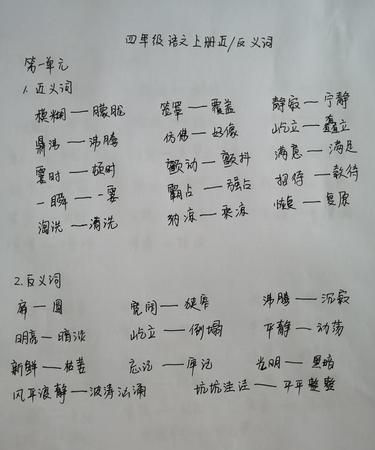 四年级语文上册近/反义词
第一单元
1.近义词
模糊——朦胧 笼罩——覆盖 静寂——宁静
鼎沸——沸腾 仿佛——好像 屹立——矗立
霎时——顿时 颤动——颤抖 满意——满足
一瞬——一霎 霸占——强占 招待——款待
淘洗——清洗 纳凉——乘凉 恢复——复原
2.反义词
扁—圆 宽阔——狭窄 沸腾——沉寂
明亮——暗淡 屹立——倒塌 平静——动荡
新鲜——枯萎 忘记——牢记 光明——黑暗
风平浪静——波涛汹涌 坑坑洼洼——平平整整